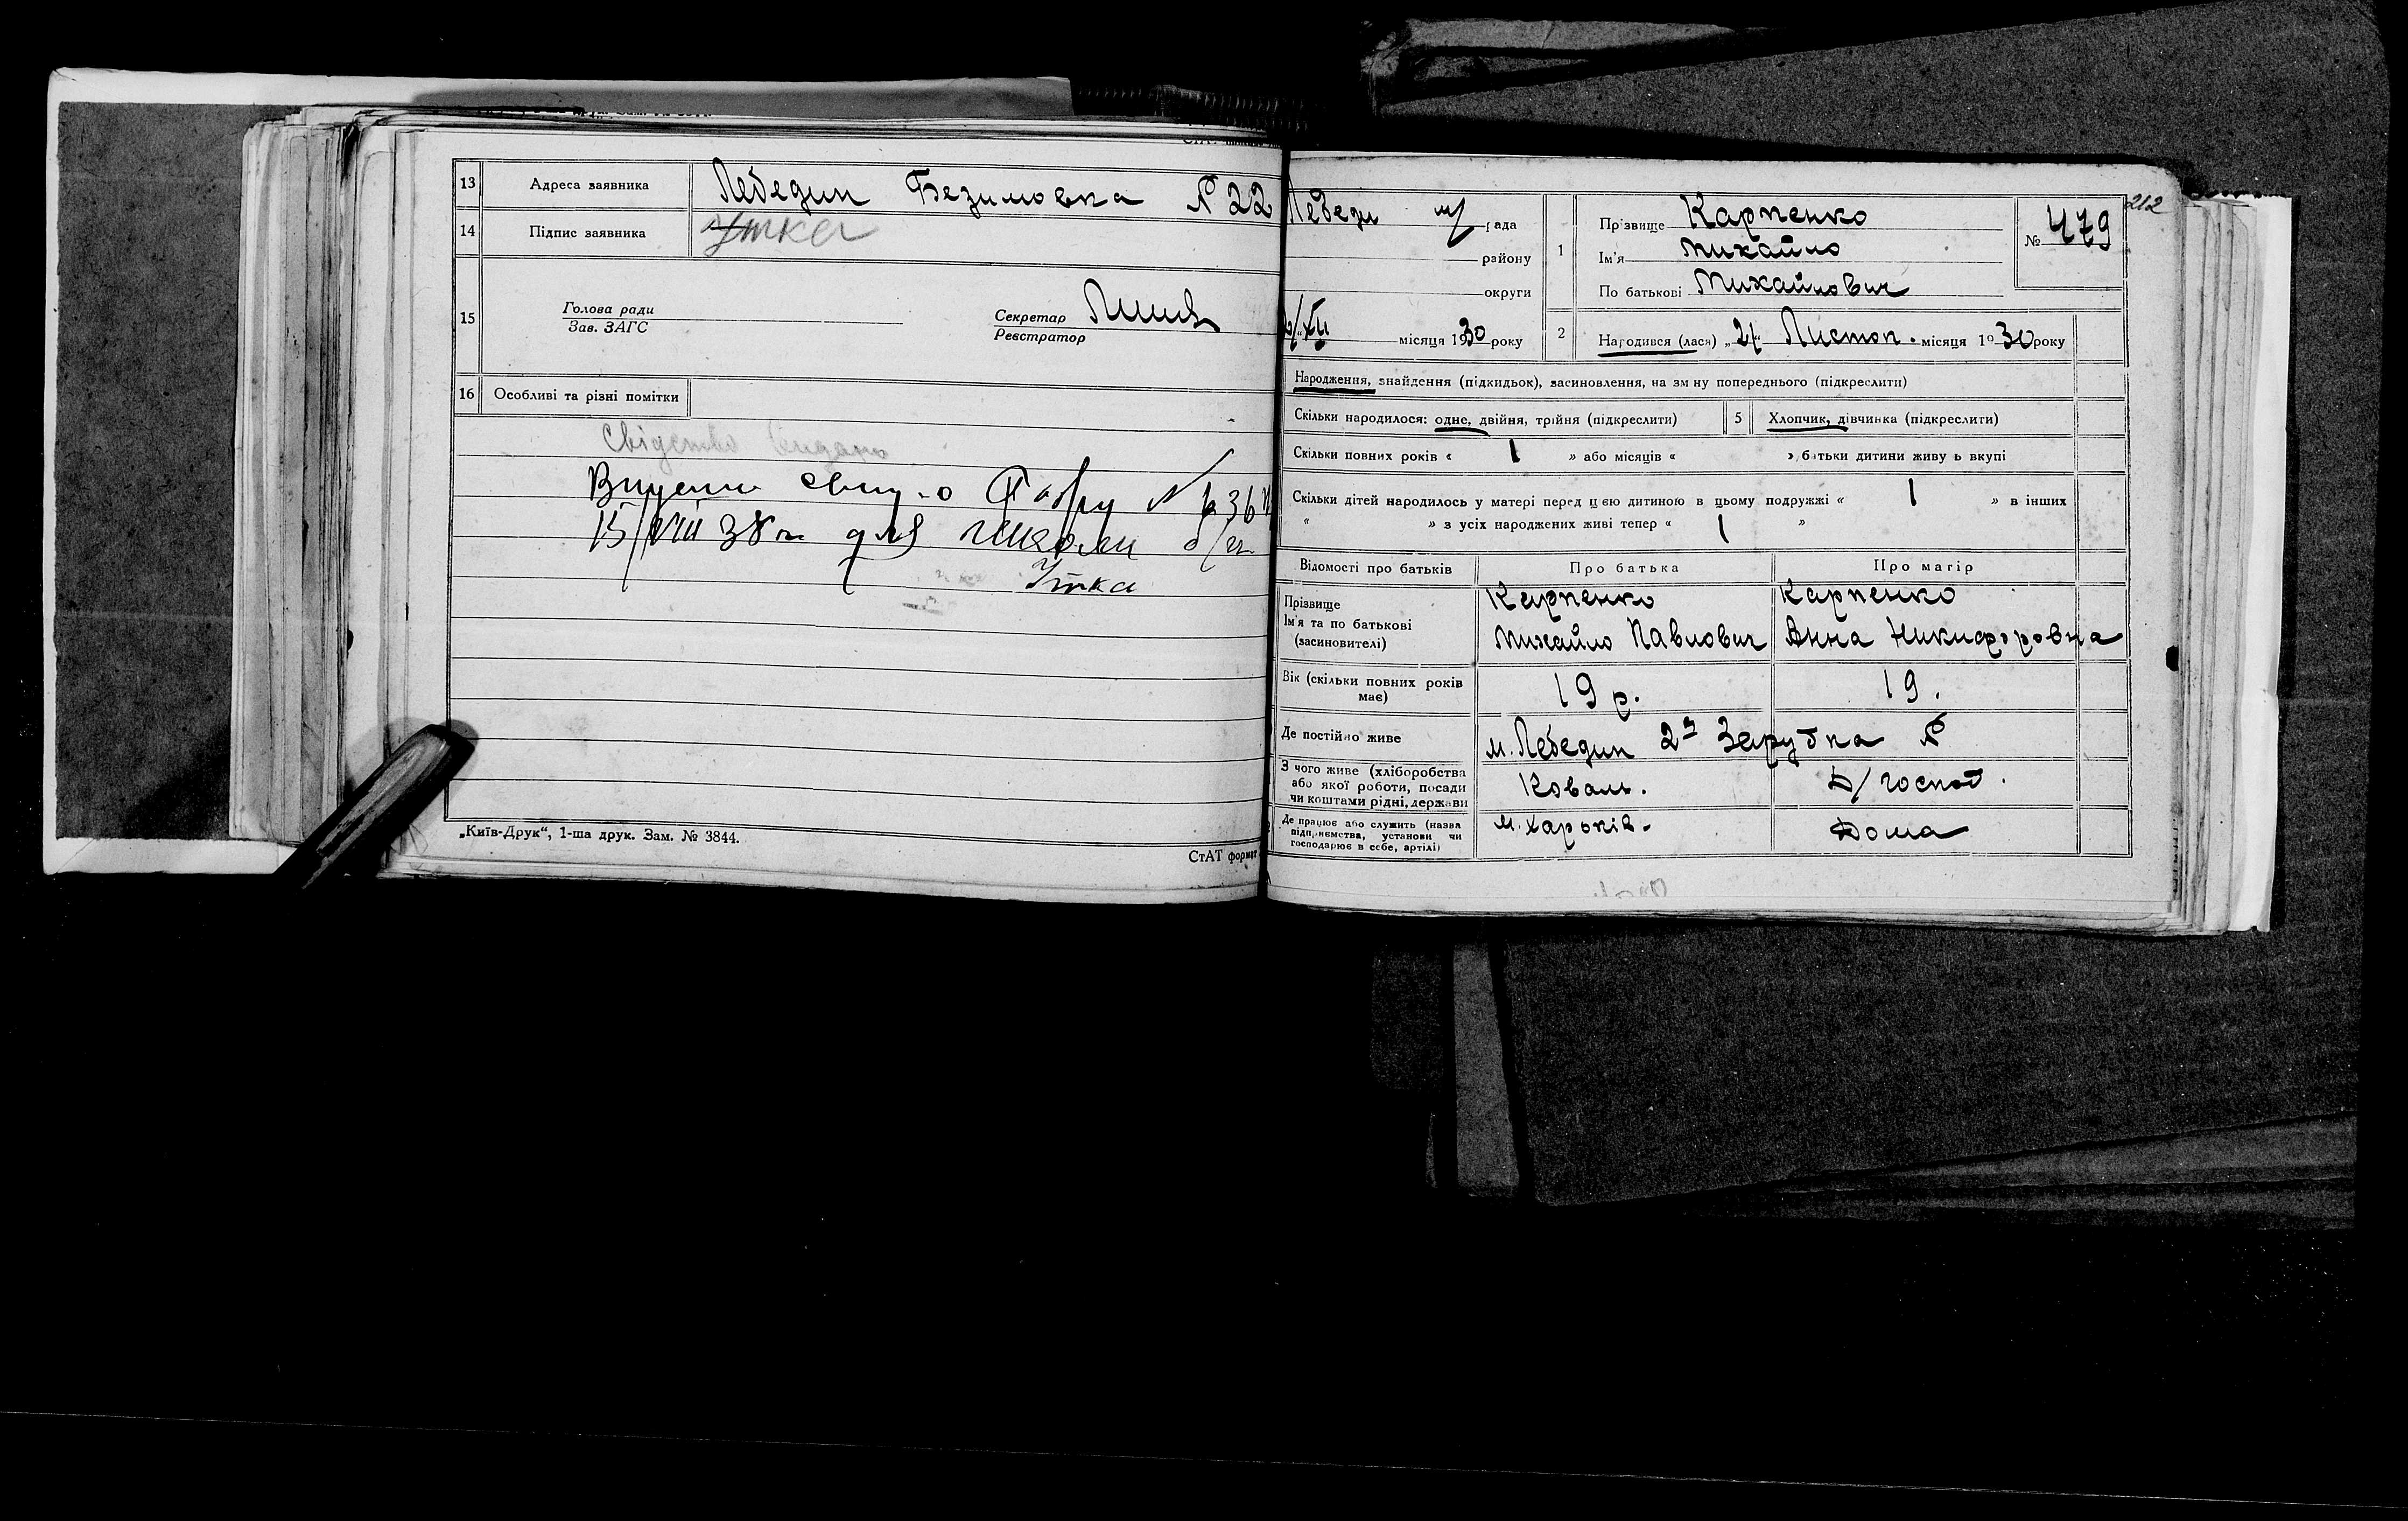 13 Адреса заявника Лебедин Безимовка № 22
14 Підпис заявника Утка
15 Голова ради
Зав. ЗАГС
Секретар
Реєстратор
16 Особливі та різні помітки
Свідоцтво видано
15/VIII 38 р. для школи
Утка
„Київ-Друк“, 1-ша друк. Зам. № 3844.
СтАТ формат
212
Лебеди м/рада
району
округи
/XII місяця 1930 року
1 Прізвище Карпенко
Ім'я Михайло
По батькові Михайлович
№ 479
2 Народився (лася) „ “ Листоп. місяця 1930 року
Народження, знайдення (підкидьок), засиновлення, на зміну попереднього (підкреслити)
Скільки народилося: одне, двійня, трійня (підкреслити)
5 Хлопчик, дівчинка (підкреслити)
Скільки повних років « 1 » або місяців « » батьки дитини живуть вкупі
Скільки дітей народилось у матері перед цією дитиною в цьому подружжі « 1 » в інших
« » з усіх народжених живі тепер « 1 »
Відомості про батьків Про батька Про матір
Прізвище
Ім'я та по батькові
(засиновителі)
Карпенко
Михайло Павлович
Карпенко
Анна Никифоровна
Вік (скільки повних років має) 19 р. 19.
Де постійно живе м. Лебедин 2га Зарубка №
З чого живе (хліборобства
або якої роботи, посади
чи коштами рідні, держави
Коваль. Д/господ.
Де працює або служить (назва
підприємства, установи чи
господарює в себе, артілі)
м. Харьків. Дома